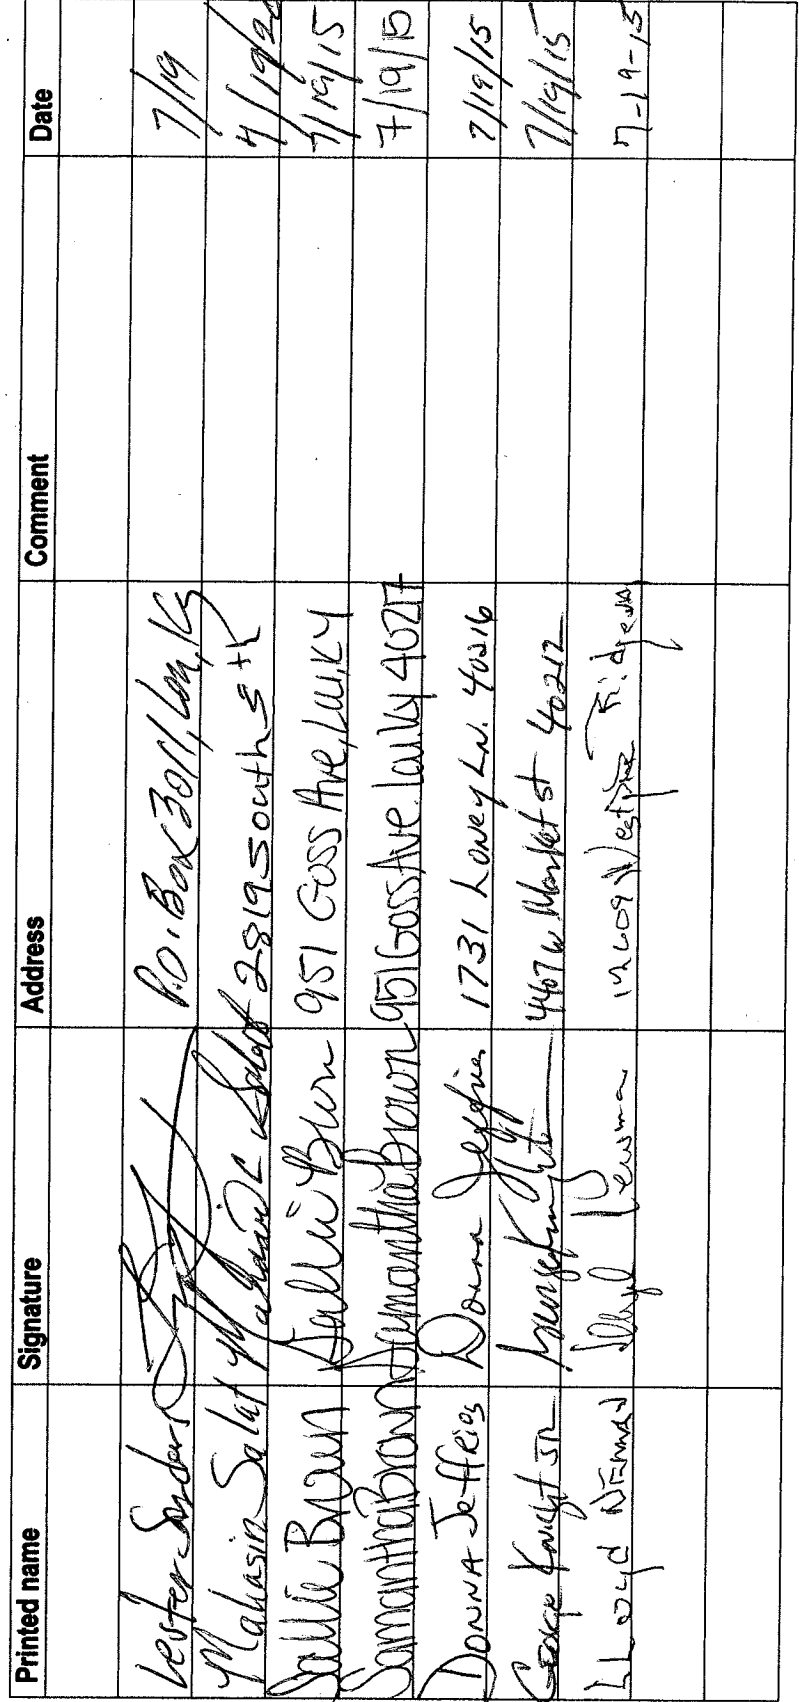 Printed name Signature Address Comment Date
Lester Sanders P.O. Box 3011, Lou, Ky 7/19
Mahasin Salat Mahasin Salat 2819 South 5th 7/19/20
Sallie Brown Sallie Brown 951 Goss Ave, Lou, KY 7/19/15
Samantha Brown Samantha Brown 951 Goss Ave. Lou Ky 40217 7/19/15
DONNA Jeffries Donna Jeffries 1731 Loney Ln. 40216 7/19/15
George Knight JR George Knight 4467 W Market St 40212 7/19/15
Lloyd 7-19-15